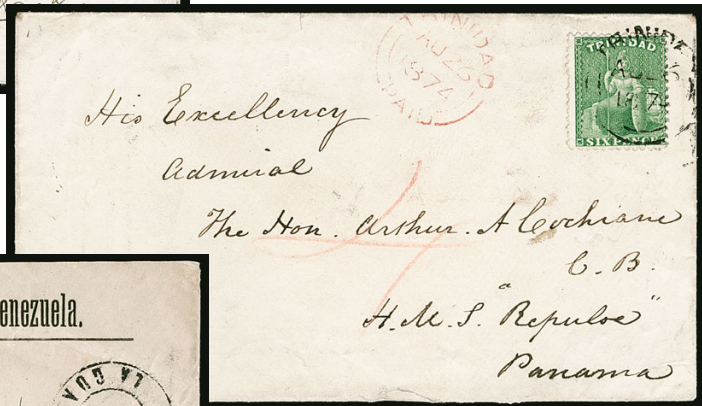 TRINIDAD
AU 26
1874
PAID
TRINIDAD
AU 26
1874
TRINIDAD
SIX PENCE
His Excellency
Admiral
The Hon. Arthur. A Cochrane
C. B.
H. M. S. "Repulse"
Panama
4
enezuela.
LA GUA